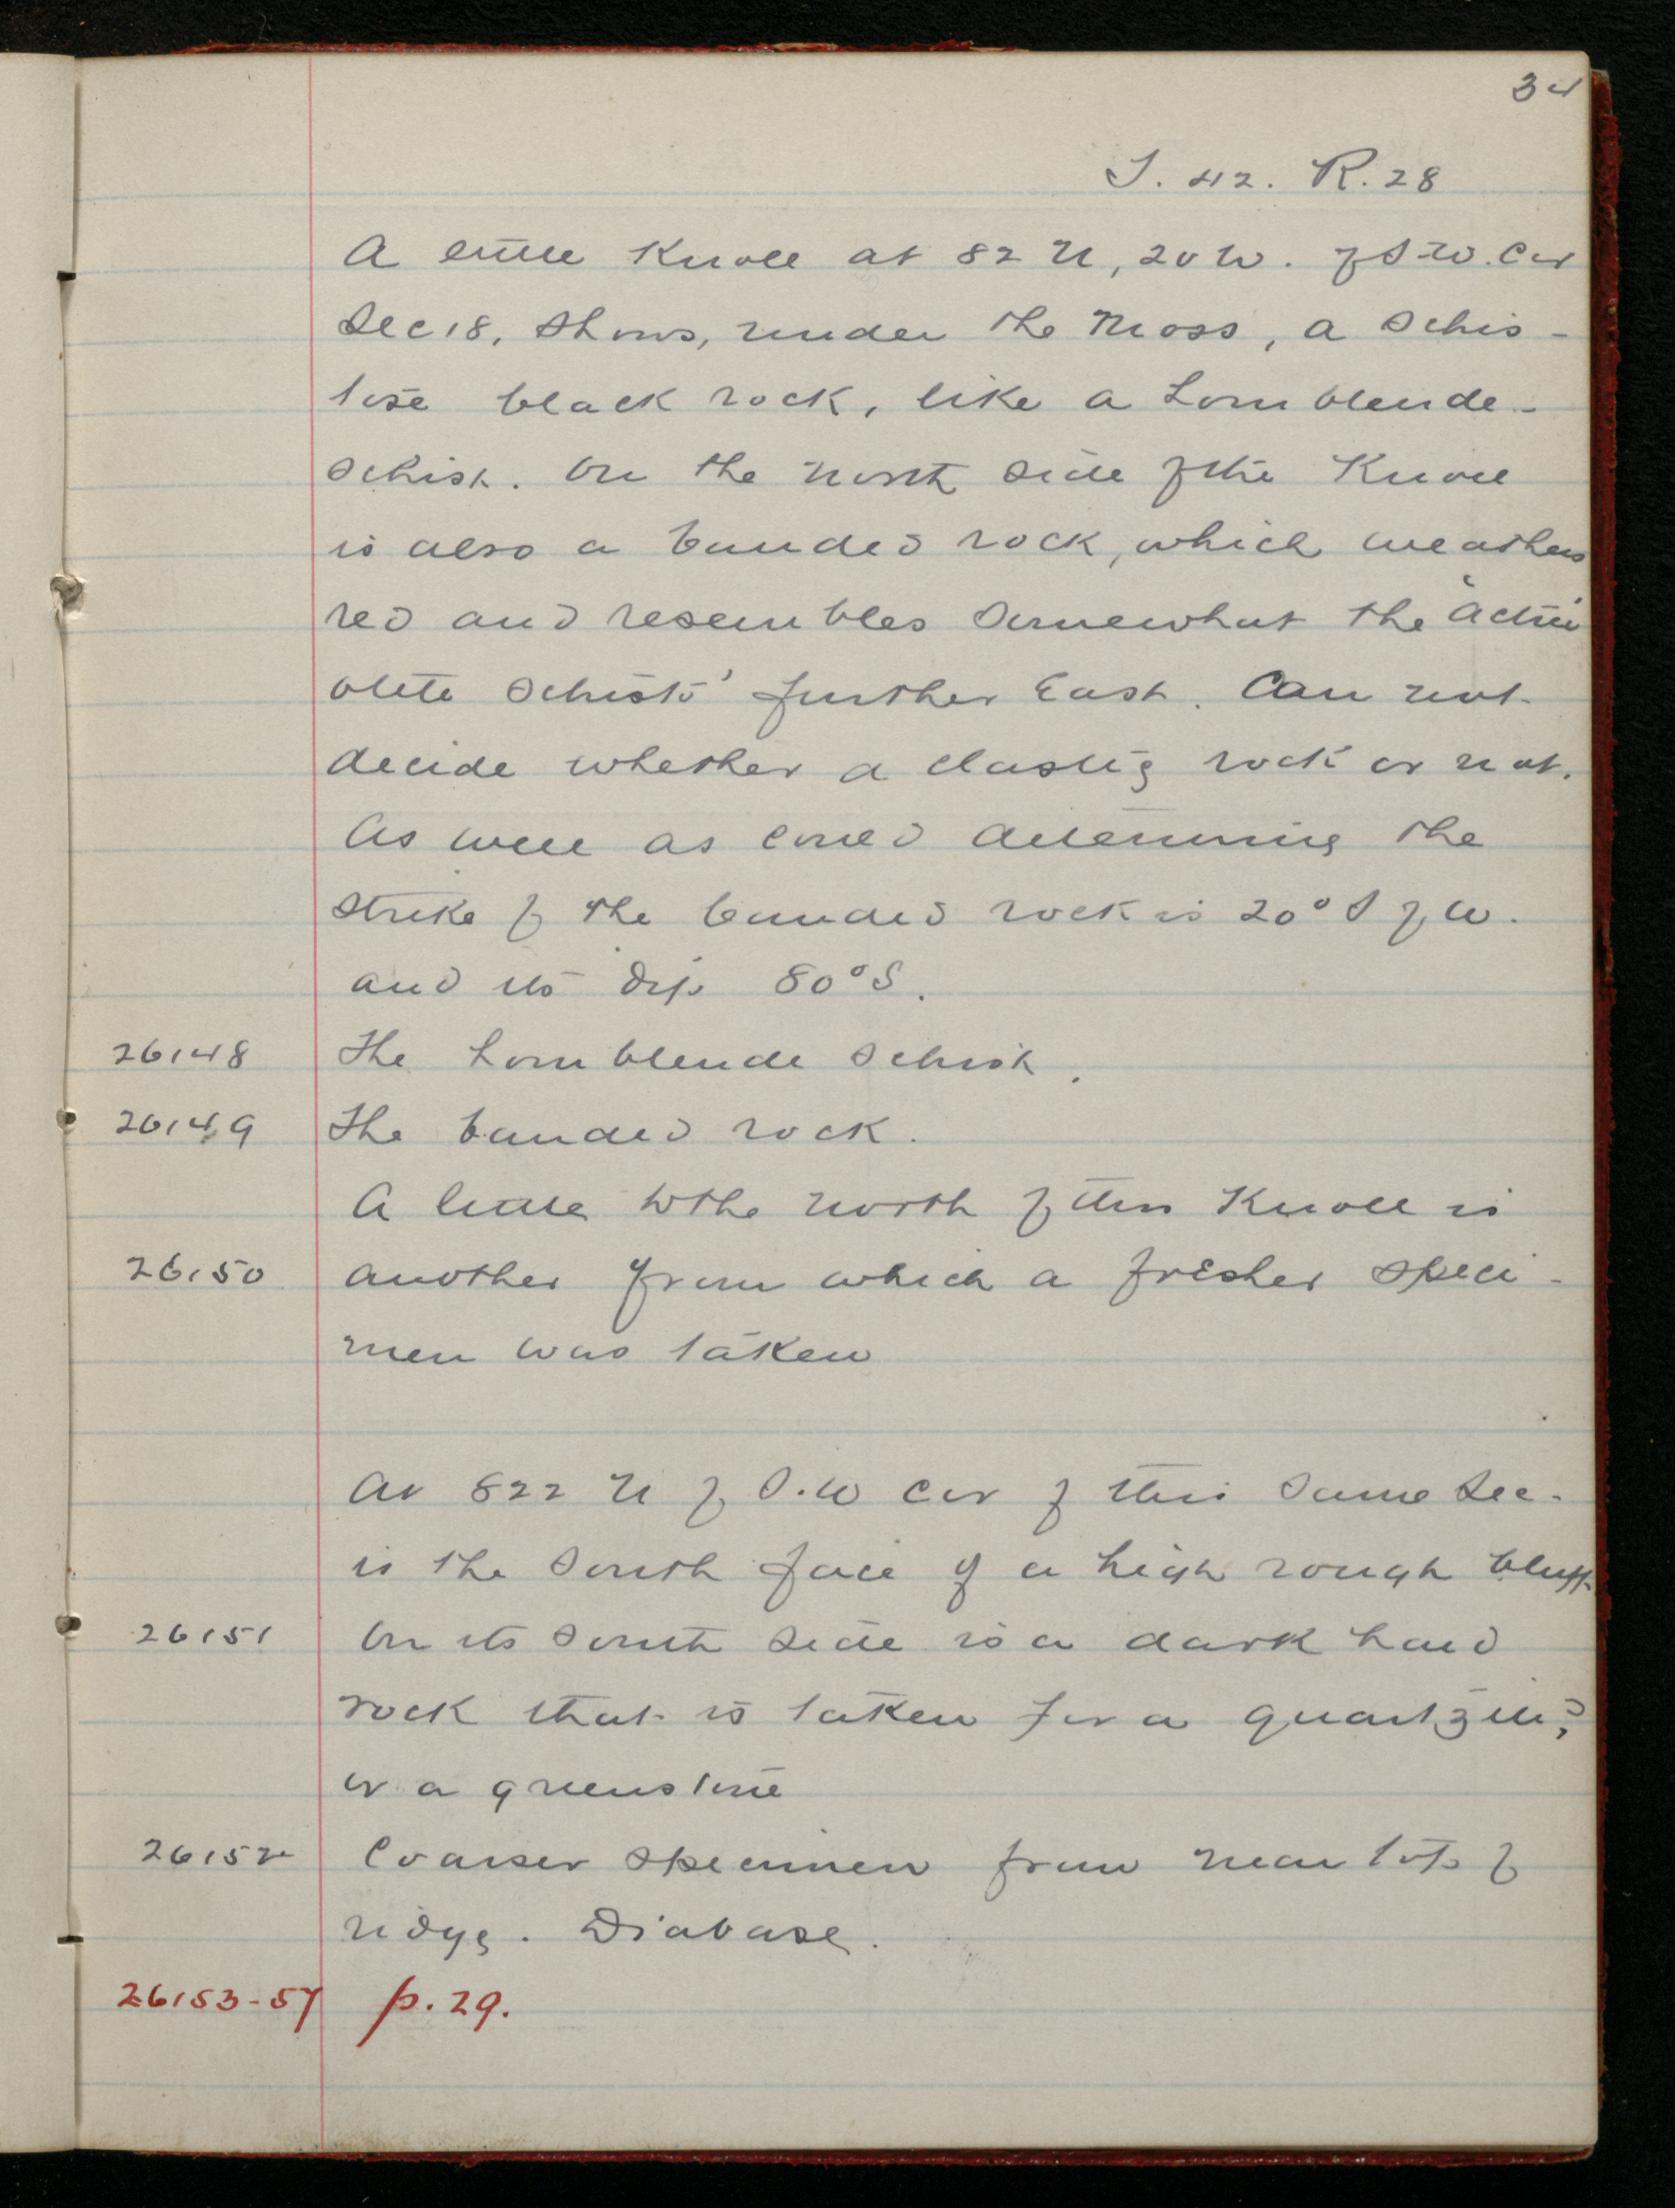 34
T. 42. R. 28
A little Knoll at 82 N, 20 W. of S.W. Cor
Sec 18, shows, under the moss, a schis-
tose black rock, like a hornblende-
schist. On the north side of the Knoll
is also a banded rock, which weathers
red and resembles somewhat the "actin
olite schists" further East. Can not
decide whether a clastic rock or not.
As well as could determine the
strike of the banded rock is 20° S of W.
and its dip 80° S.
26148 The hornblende schist.
26149 The banded rock.
A little to the north of this Knoll is
26150 another from which a fresher speci-
men was taken
At 822 N of S.W Cor of this same Sec.
is the south face of a high rough bluff
26151 On its south side is a dark hard
rock that is taken for a quartzite?
or a greenstone
26152 Coarser specimen from near top of
ridge. Diabase.
26153-57 p. 29.